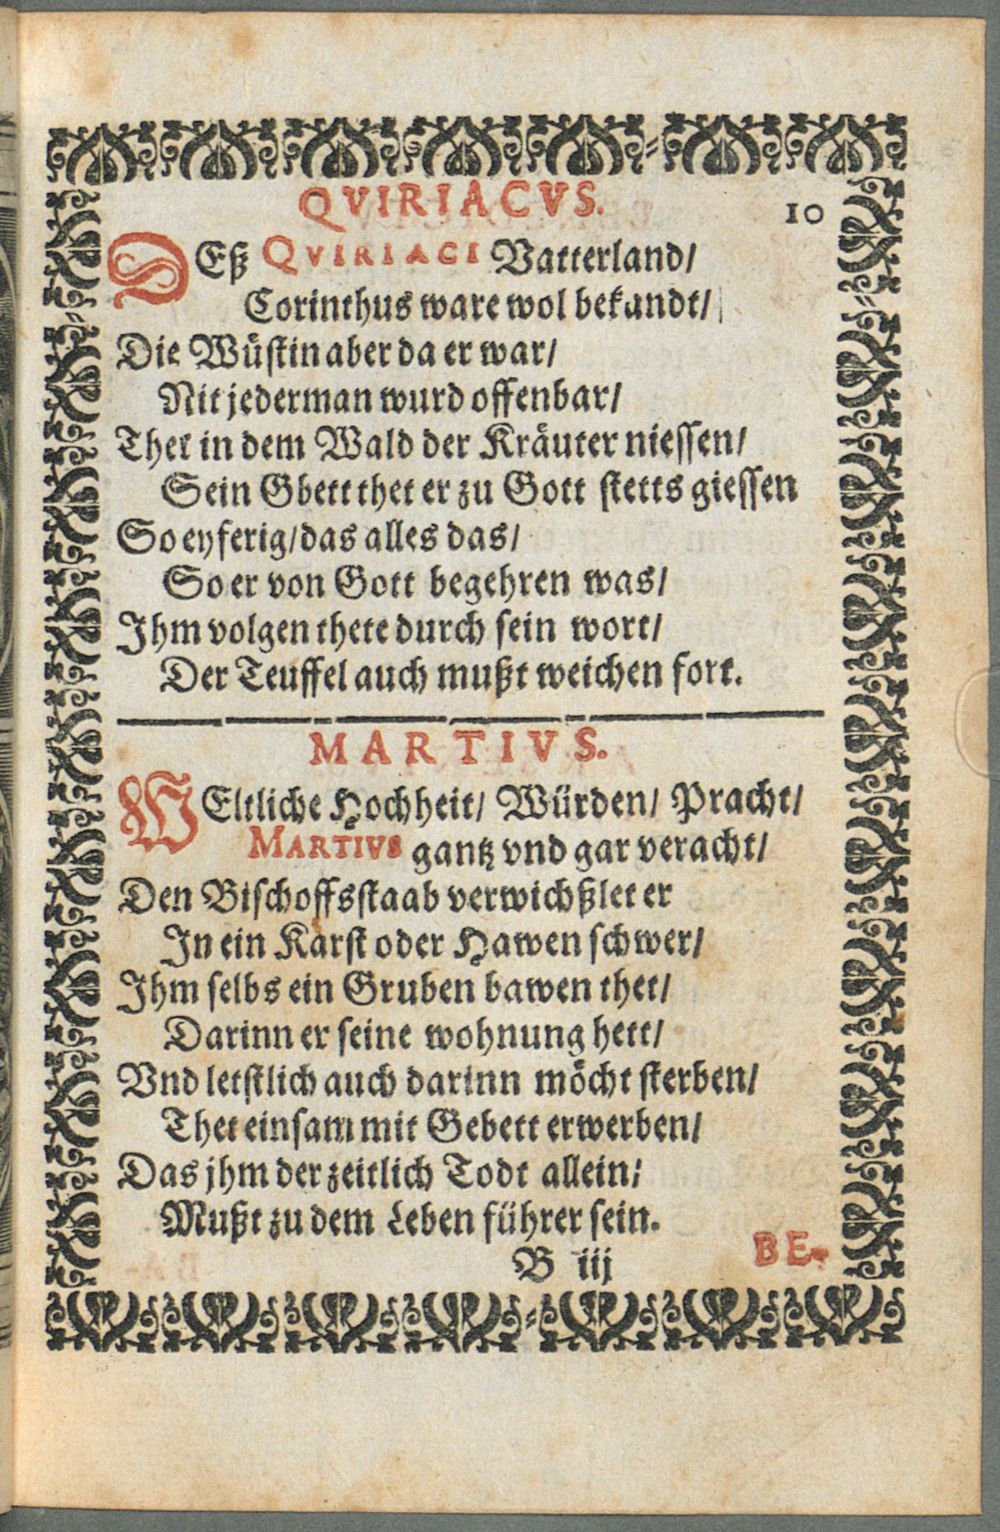 QVIRIACVS.
10
DEß QVIRIACI Vatterland/
Corinthus ware wol bekandt/
Die Wüstin aber da er war/
Nit jederman wurd offenbar/
Thet in dem Wald der Kräuter niessen/
Sein Gbett thet er zu Gott stetts giessen
So eyferig/das alles das/
So er von Gott begehren was/
Ihm volgen thete durch sein wort/
Der Teuffel auch mußt weichen fort.
MARTIVS.
WEltliche Hochheit/ Würden/ Pracht/
MARTIVS gantz vnd gar veracht/
Den Bischoffsstaab verwichßlet er
In ein Karst oder Hawen schwer/
Ihm selbs ein Gruben bawen thet/
Darinn er seine wohnung hett/
Vnd letstlich auch darinn möcht sterben/
Thet einsam mit Gebett erwerben/
Das jhm der zeitlich Todt allein/
Mußt zu dem Leben führer sein.
B iij
BE-